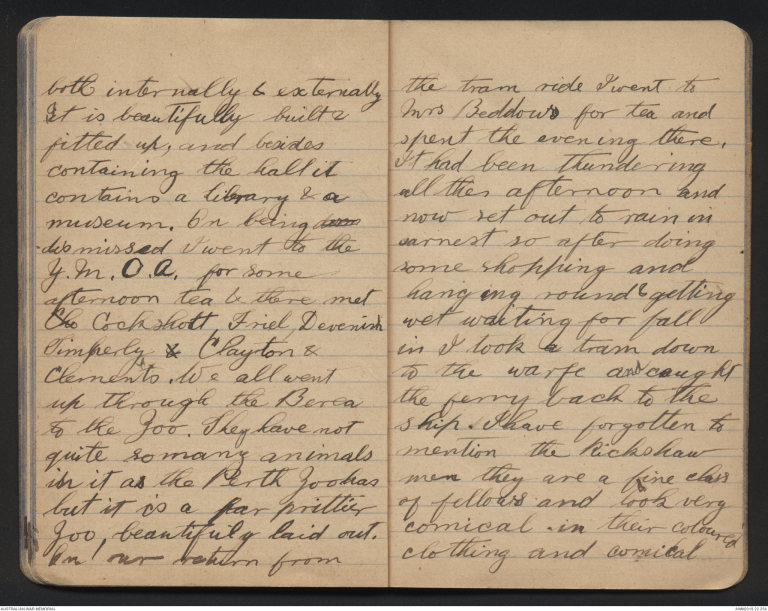 both internally & externally
It is beautifully built &
fitted up, and besides
containing the hall it
contains a library & a
museum. On being
dismissed I went to the
Y.M.C.A. for some
afternoon tea & there met
Cockshott, Friel, Devenish
Timperly & Clayton &
Clements. We all went
up through the Berea
to the Zoo. They have not
quite so many animals
in it as the Perth Zoo has
but it is a far prittier
Zoo, beautifully laid out.
On our return from
the tram ride I went to
Mrs Beddows for tea and
spent the evening there.
It had been thundering
all the afternoon and
now set out to rain in
earnest so after doing
some shopping and
hanging round & getting
wet waiting for fall
in I took a tram down
to the warfe and caught
the ferry back to the
ship. I have forgotten to
mention the Rickshaw
men they are a fine class
of fellows and look very
comical in their coloured
clothing and comical
AUSTRALIAN WAR MEMORIAL